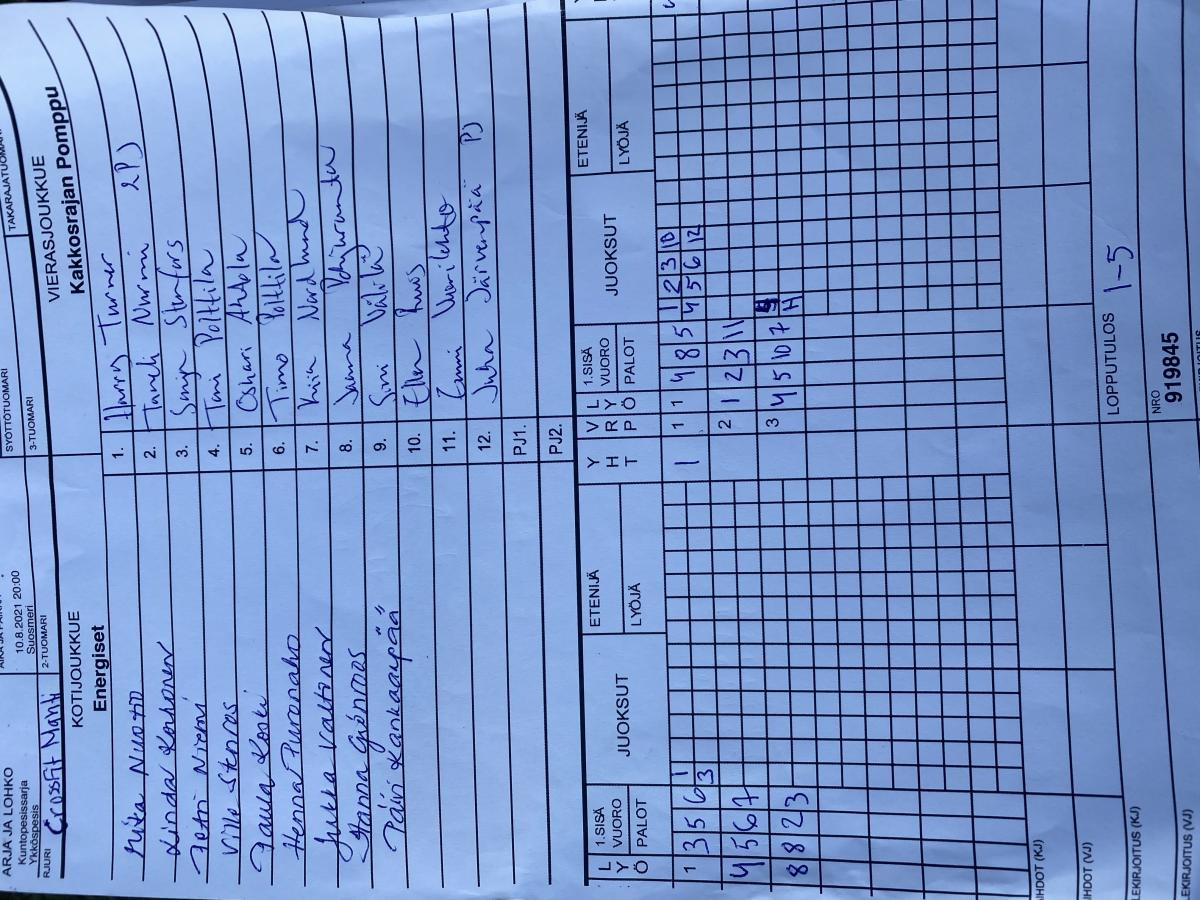 ARJA JA LOHKO
Kuntopesissarja
Ykköspesis
10.8.2021 20:00
Suosmeri
SYÖTTÖTUOMARI
TAKARAJATUOMARI
RJURI Crossfit Mänti
2-TUOMARI
3-TUOMARI
KOTIJOUKKUE
VIERASJOUKKUE
Energiset
Kakkosrajan Pomppu
1. Harry Turner
2. Taneli Nurmi 2PJ
3.
4. Toni Polttila
5. Oskari Ahtola
6. Timo Polttila
7. Kiia Nordlund
8. Janna
9. Sini Välilä
10. Ellen Ruus
11. Emmi Vuorilehto
12. Juha Järvenpää PJ
PJ1.
PJ2.
Mita Nuotio
Linda Korhonen
Petri Niemi
Ville Stenroos
Paula Koski
Henna Puronaho
Jukka Valtonen
Hanna Grönroos
Päivi Kankaanpää
LYÖ
1.SISÄ VUORO PALOT
JUOKSUT
ETENIJÄ
LYÖJÄ
YHT
VRP
LYÖ
1.SISÄ VUORO PALOT
JUOKSUT
ETENIJÄ
LYÖJÄ
1 3 5 6 1 3
1 1 4 8 5 1 2 3 10
4 5 6 12
4 5 6 7
2 1 2 3 11
8 8 2 3
3 4 5 10 7 H
IHDOT (KJ)
IHDOT (VJ)
LOPPUTULOS 1-5
LEKIRJOITUS (KJ)
NRO
919845
LEKIRJOITUS (VJ)